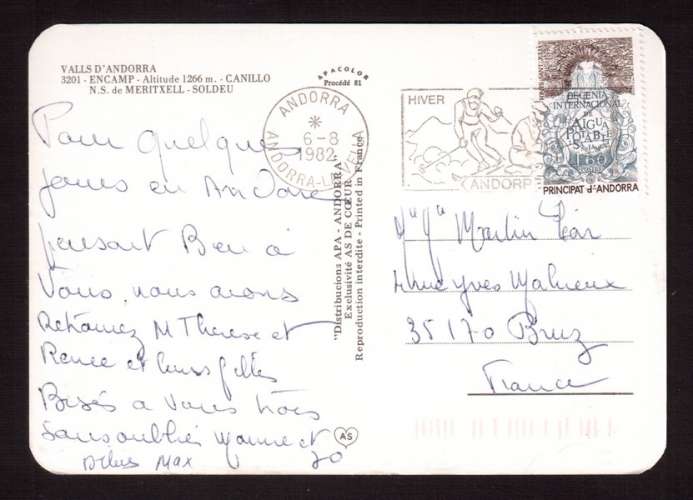 VALLS D'ANDORRA
3201 - ENCAMP - Altitude 1266 m. - CANILLO
N.S. de MERITXELL - SOLDEU
APACOLOR
Procédé 81
ANDORRA
6-8
1982
ANDORRA-LA-VELLA
HIVER
ANDORR
DECENIA
INTERNACIONAL
DE
AIGUA
POTABLE
1,60
PRINCIPAT d'ANDORRA
"Distribucions APA - ANDORRA
Exclusivité AS DE CŒUR
Reproduction interdite - Printed in France
Pour quelques
jours en Andore
pensant Bien à
Vous, nous avons
M Therese et
Renee et leurs filles
à Vous trois
Sans oublier et
Max
Martin
rue Yves
35170 Bruz
France
AS